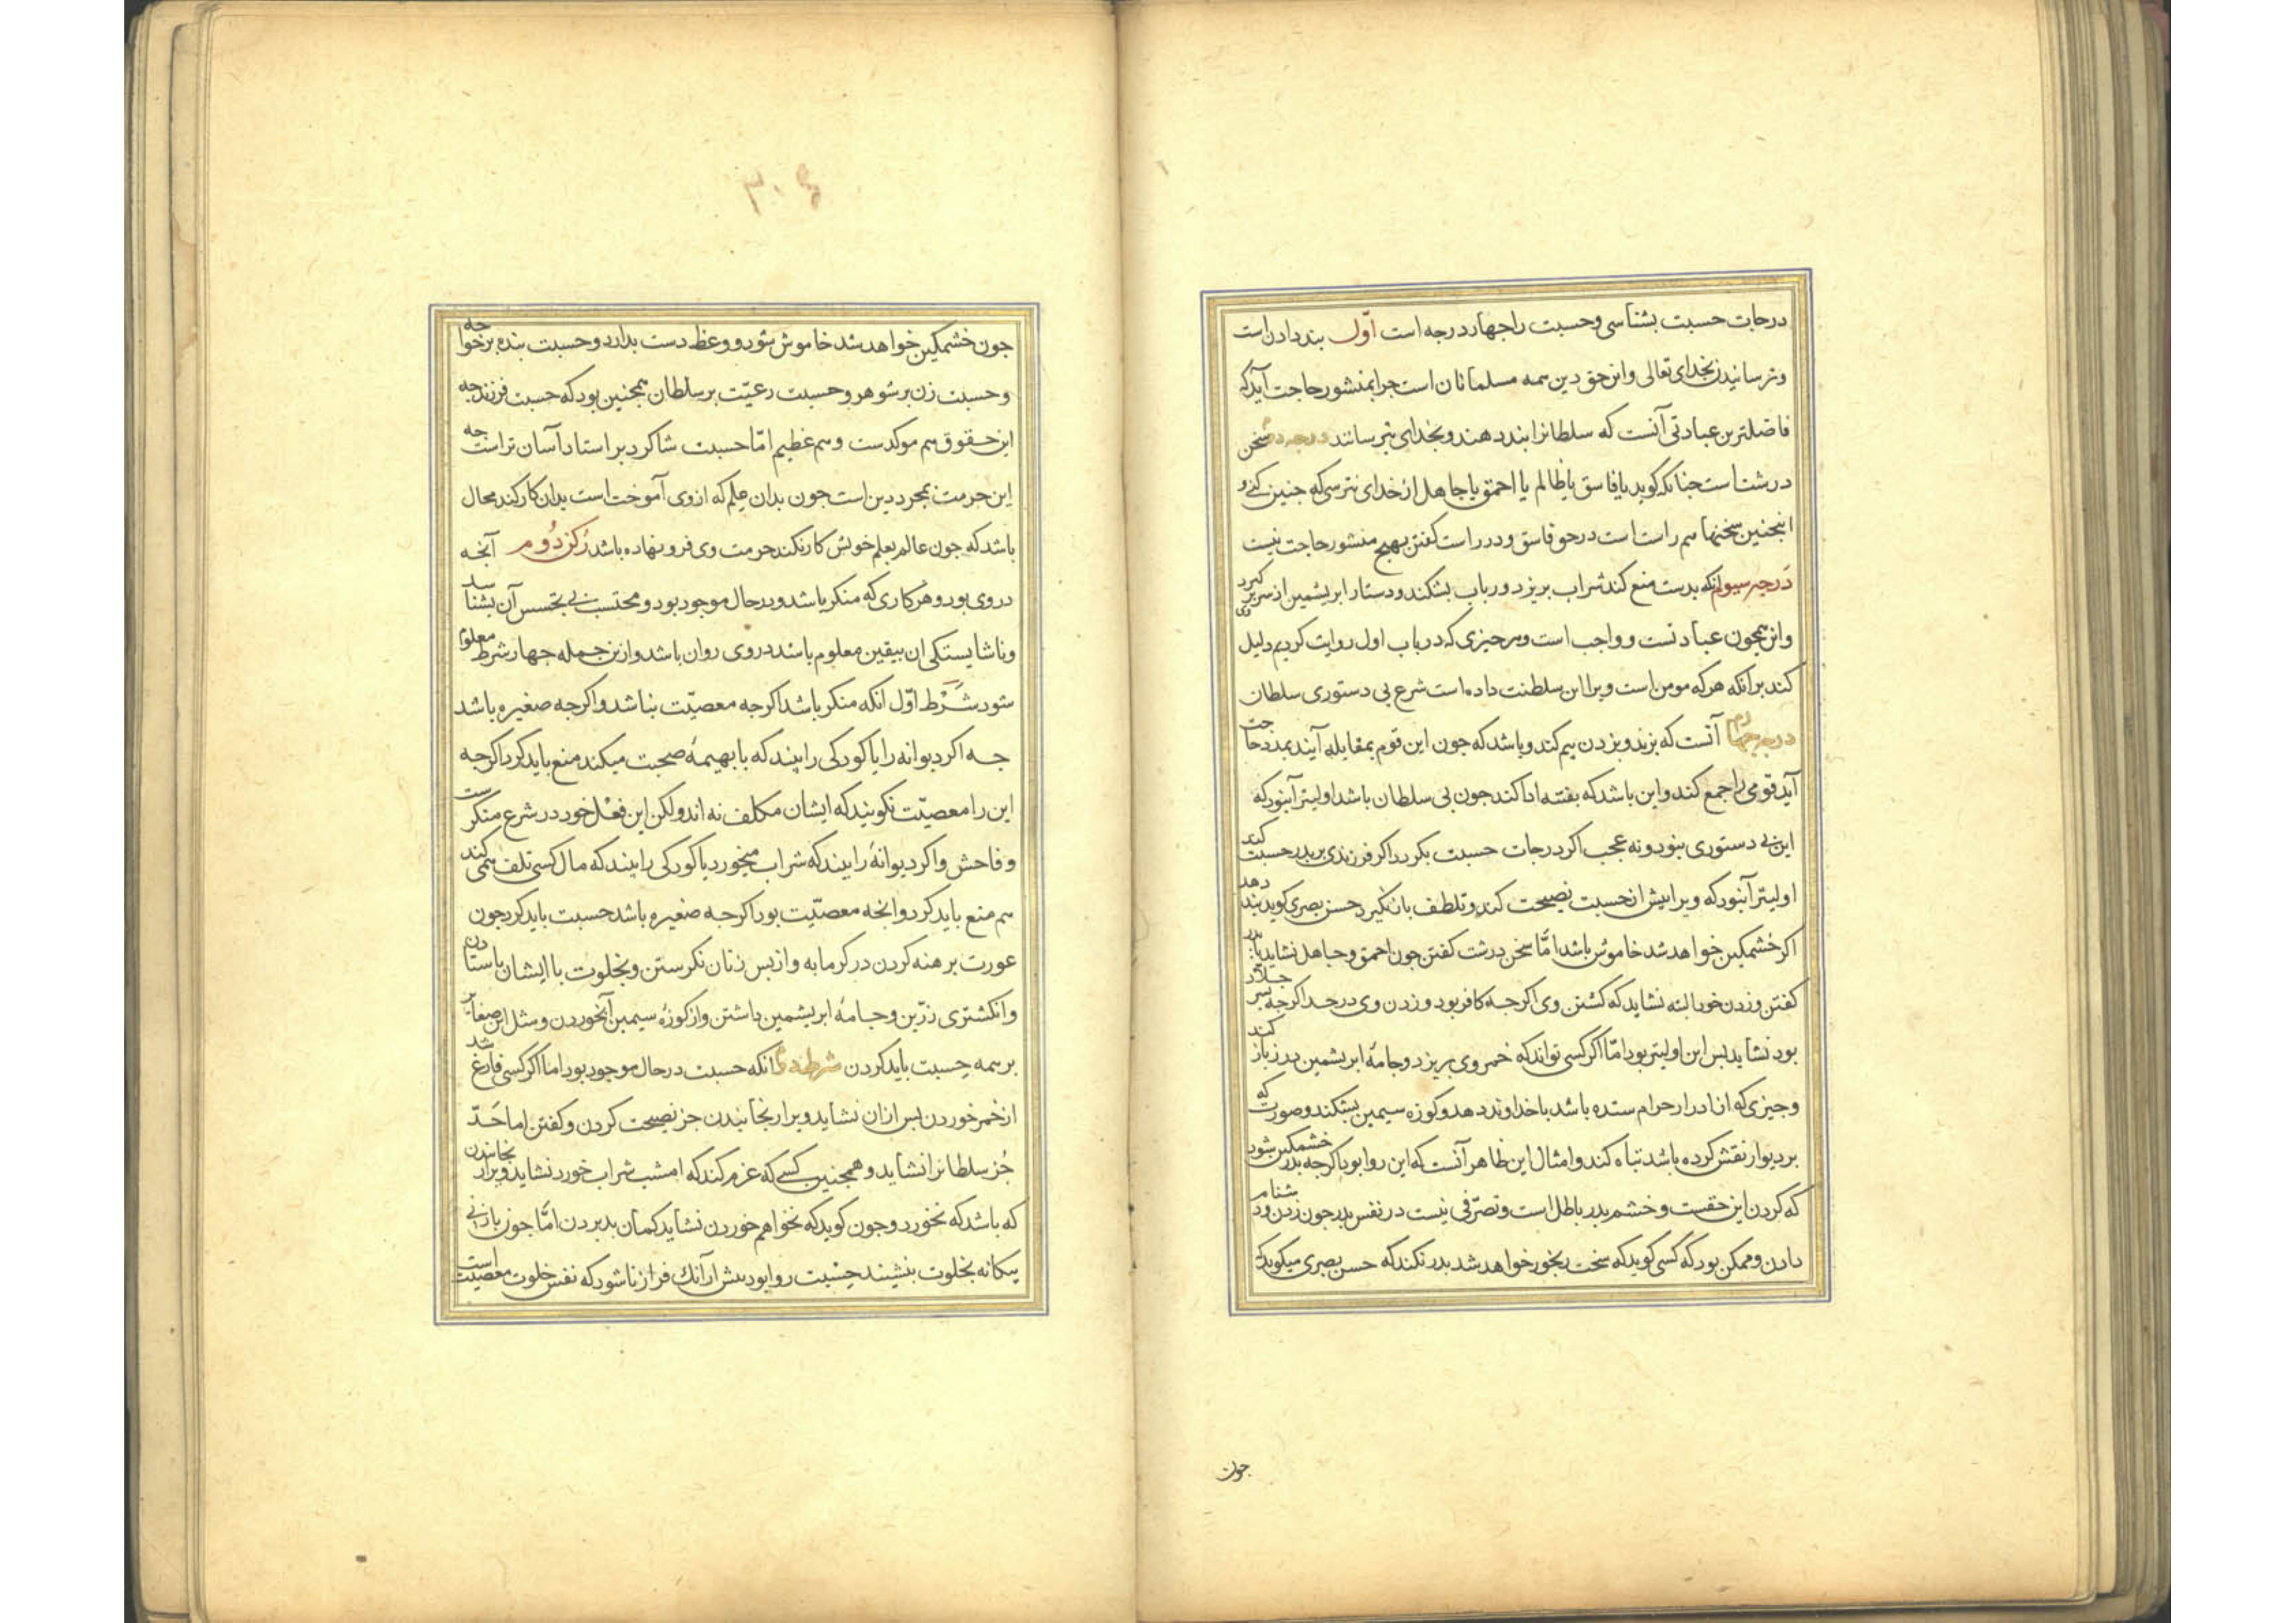 درجات حسبت بشناسی وحسبت راجهار درجه است اوّل بند دادن است
وترسانیدن بخدای تعالی واین حق دین همه مسلمانان است جرا بمنشور حاجت آید که
فاضلترین عبادتی آنست که سلطانرا بند دهند وبخدای بترسانند درجه دوم سخن
درشت است جنانکه کوید یا فاسق یا ظالم یا احمق یا جاهل از خدای نترسی که جنین کنی و
اینجنین سخنها هم راست است درحق فاسق ودر راست کفتن بهیج منشور حاجت نیست
درجه سیوم انکه بدست منع کند شراب بریزد ورباب بشکند ودستار ابریشمین از سر وی برکیرد
واین همجون عبادتست وواجب است وهرجیزی که درباب اول روایت کردیم دلیل
کند برانکه هرکه مومن است ویرا این سلطنت داده است شرع بی دستوری سلطان
درجه جهارم آنست که بزند وبزدن بیم کند وباشد که جون این قوم بمقابله آیند بمدد حاجت
آید قومی را جمع کند واین باشد که بفتنه ادا کند جون بی سلطان باشد اولیتر آنبود که
این بی دستوری بنود ونه عجب اکر درجات حسبت بکردد اکر فرزندی بر بدر حسبت کند
اولیتر آنبود که ویرا بیش از حسبت نصیحت کند وتلطف بان کیرد حسن بصری کوید بند دهد
اکر خشمکین خواهد شد خاموش باشد امّا سخن درشت کفتن جون احمق وجاهل نشاید با بدر
کفتن وزدن خود البته نشاید که کشتن وی اکرجه کافر بود وزدن وی درحد اکرجه بسر جلاد
بود نشاید بس این اولیتر بود امّا اکر کسی تواند که خمر وی بریزد وجامهٔ ابریشمین درز باز کند
وجیزی که از ادرار حرام ستده باشد با خداوند دهد وکوزه سیمین بشکند وصورت که
بر دیوار نقش کرده باشد تباه کند وامثال این ظاهر آنست که این روا بود اکرجه بدر خشمکین شود
که کردن این حقست وخشم بدر باطل است وتصرّفی نیست در نفس بدر جون زدن ودشنام
دادن وممکن بود که کسی کوید که سخت رنجور خواهد شد بدر نکند که حسن بصری میکوید که
جون
٣٠٤
جون خشمکین خواهد شد خاموش شود ووعظ دست بدارد وحسبت بنده بر خواجه
وحسبت زن بر شوهر وحسبت رعیّت بر سلطان همجنین بود که حسبت فرزند جه
این حقوق هم موکدست وهم عظیم امّا حسبت شاکرد بر استاد آسان تر است جه
این حرمت بمجرد دین است جون بدان علم که از وی آموخت است بدان کار کند محال
باشد که جون عالم بعلم خویش کار نکند حرمت وی فرو نهاده باشد رکن دوم آنجه
در وی بود وهر کاری که منکر باشد ودرحال موجود بود ومحتسب بی تجسس آن بشناسد
وناشایستکی ان بیقین معلوم باشد در وی روان باشد واز بن جمله جهار شرط معلوم
شود شرط اوّل انکه منکر باشد اکرجه معصیّت نباشد واکرجه صغیره باشد
جه اکر دیوانه را یا کودکی را بیند که با بهیمهٔ صحبت میکند منع باید کرد اکرجه
این را معصیّت نکویند که ایشان مکلف نه اند ولکن این فعل خود در شرع منکرست
وفاحش واکر دیوانهٔ را بیند که شراب میخورد یا کودکی را بیند که مال کسی تلف همی کند
هم منع باید کرد وانجه معصیّت بود اکرجه صغیره باشد حسبت باید کرد جون
عورت برهنه کردن در کرمابه واز بس زنان نکرستن وبخلوت با ایشان باستادن
وانکشتری زرّین وجامهٔ ابریشمین داشتن واز کوزهٔ سیمین آبخوردن ومثل این صغایر
بر همه حسبت باید کردن شرط دوم انکه حسبت درحال موجود بود اما اکر کسی فارغ شد
از خمر خوردن بس از ان نشاید ویرا رنجانیدن جز نصیحت کردن وکفتن اما حَدّ
جُز سلطانرا نشاید وهمجنین کسی که عزم کند که امشب شراب خورد نشاید ویرا رنجانیدن
که باشد که نخورد وجون کوید که نخواهم خوردن نشاید کمان بد بردن امّا جون با زنی
بیکانه بخلوت بنشیند حسبت روا بود بیش از آنك فراز ناشود که نفس خلوت معصیت است